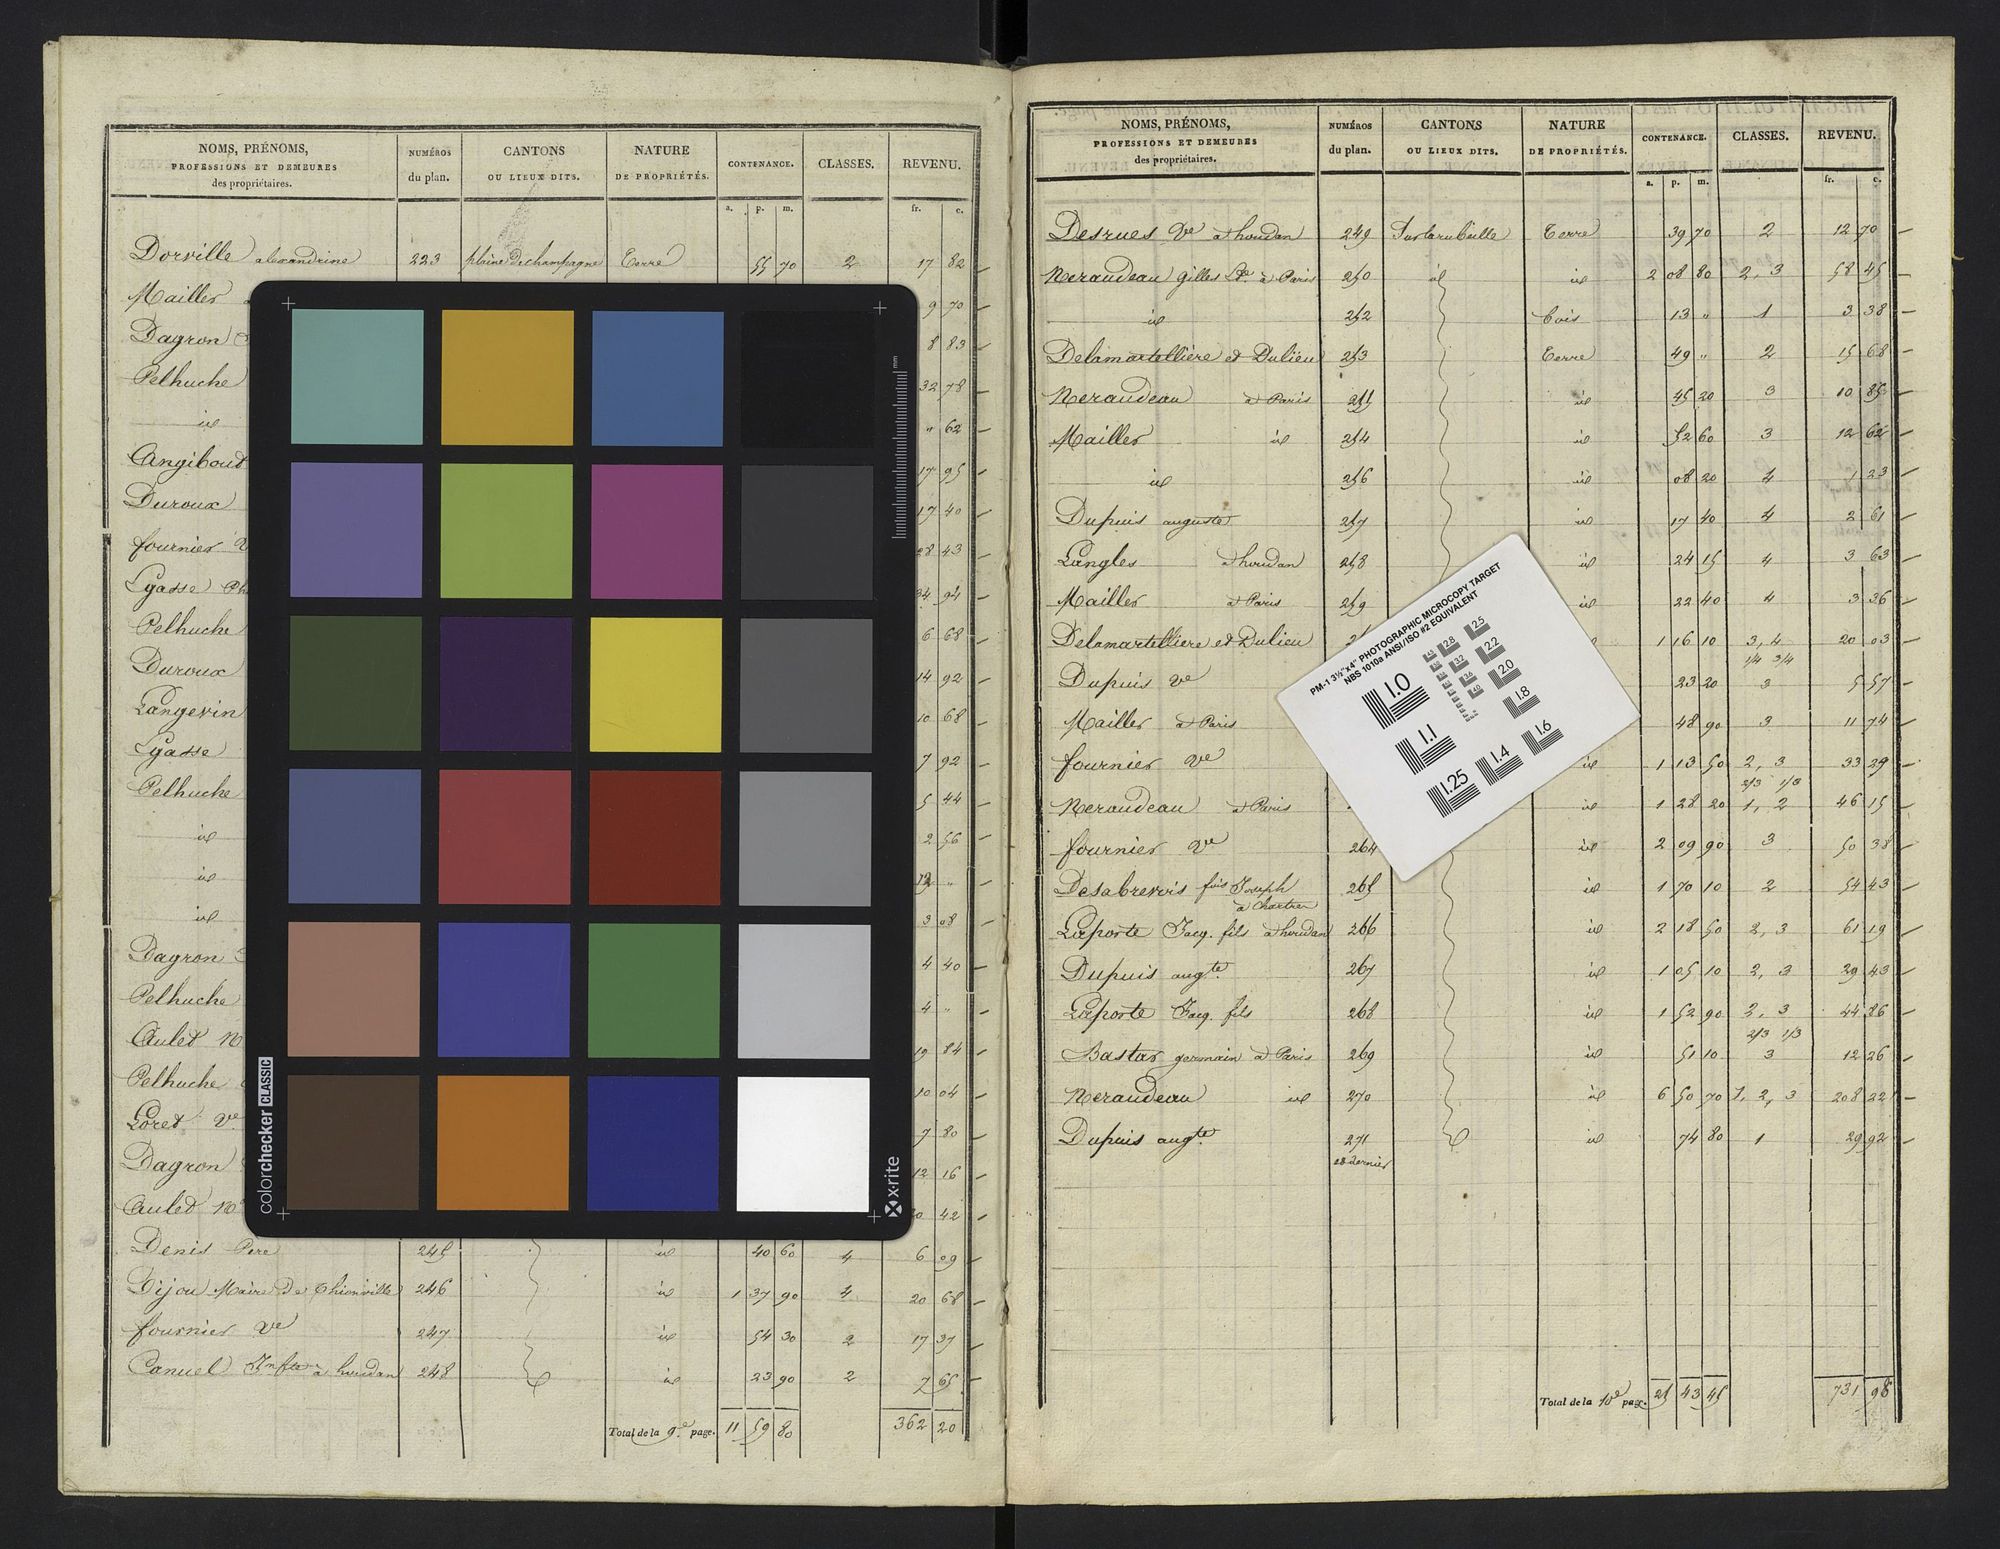 NOMS, PRÉNOMS, PROFESSIONS ET DEMEURES des propriétaires. NUMÉROS du plan. CANTONS OU LIEUX DITS. NATURE DE PROPRIÉTÉS. CONTENANCE. CLASSES. REVENU.
a. p. m. fr. c.
Dorville alexandrine 223 plaine de champagne Terre 55 70 2 17 82
Mailler 9 70
Dagron 8 83
Pelhuche 32 78
id " 62
Angiboust 17 95
Duroux 17 40
fournier 28 43
Lgasse Ph 34 94
Pelhuche 6 68
Duroux 14 92
Langevin 10 68
Lgasse 7 92
Pelhuche 5 44
id 2 56
id "
id 3 08
Dagron 4 40
Pelhuche 4 "
Aulet 19 84
Pelhuche 10 04
Loret Ve 7 80
Dagron 12 16
Aulet 42
Denis Pere 245 id 40 60 4 6 09
Dijou Maire de Thionville 246 id 1 37 90 4 20 68
fournier Ve 247 id 54 30 2 17 37
Canuel à houdan 248 id 23 90 2 7 65
Total de la 9e page. 11 59 80 362 20
colorchecker CLASSIC
x·rite
mm
NOMS, PRÉNOMS, PROFESSIONS ET DEMEURES des propriétaires. NUMÉROS du plan. CANTONS OU LIEUX DITS. NATURE DE PROPRIÉTÉS. CONTENANCE. CLASSES. REVENU.
a. p. m. fr. c.
Desrues Ve à houdan 249 Terre 39 70 2 12 70
Neraudeau gilles à Paris 250 id id 2 08 80 2, 3 58 45
id 252 bois 13 " 1 3 38
Delamartellière et Dulieu 253 Terre 49 " 2 15 68
Neraudeau à Paris id 45 20 3 10 85
Mailler id 254 id 52 60 3 12 62
id 256 id 08 20 4 1 23
Dupuis auguste 257 id 17 40 4 2 61
Langles à houdan 258 id 24 15 4 3 63
Mailler à Paris 259 id 22 40 4 3 36
Delamartelliere et Dulieu 1 16 10 3, 4 20 03
1/4 3/4
Dupuis Ve 23 20 3 5 57
Mailler à Paris 48 90 3 11 74
fournier Ve id 1 13 50 2, 3 33 29
2/3 1/3
Neraudeau à Paris id 1 28 20 1, 2 46 15
fournier Ve 264 id 2 09 90 3 50 38
Desabrevois fois Joseph 265 id 1 70 10 2 54 43
à Chartres
Laporte Jacq. fils à houdan 266 id 2 18 50 2, 3 61 19
Dupuis augte 267 id 1 05 10 2, 3 29 43
Laporte Jacq. fils 268 id 1 52 90 2, 3 44 86
2/3 1/3
Bastar germain à Paris 269 id 51 10 3 12 26
Neraudeau id 270 id 6 50 70 1, 2, 3 208 22
Dupuis augte 271 id 74 80 1 29 92
dernier
Total de la 10e page. 25 43 45 731 98
PM-1 3½"x4" PHOTOGRAPHIC MICROCOPY TARGET
NBS 1010a ANSI/ISO #2 EQUIVALENT
1.0
1.1
1.25
1.4
1.6
1.8
2.0
2.2
2.5
2.8
3.2
3.6
4.0